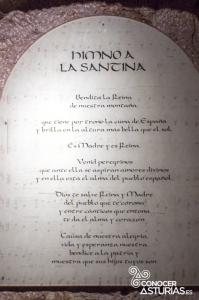 HIMNO A
LA SANTINA
Bendita la Reina
de nuestra montaña
que tiene por trono la cuna de España
y brilla en la altura más bella que el sol.
Es Madre y es Reina.
Venid peregrinos
que ante ella se aspiran amores divinos
y en ella está el alma del pueblo español.
Dios te salve Reina y Madre
del pueblo que te corona
y entre cánticos que entona
te da el alma y corazón
Causa de nuestra alegría,
vida y esperanza nuestra
bendice a la patria y
muestra que sus hijos tuyos son
CONOCER
ASTURIAS.ES